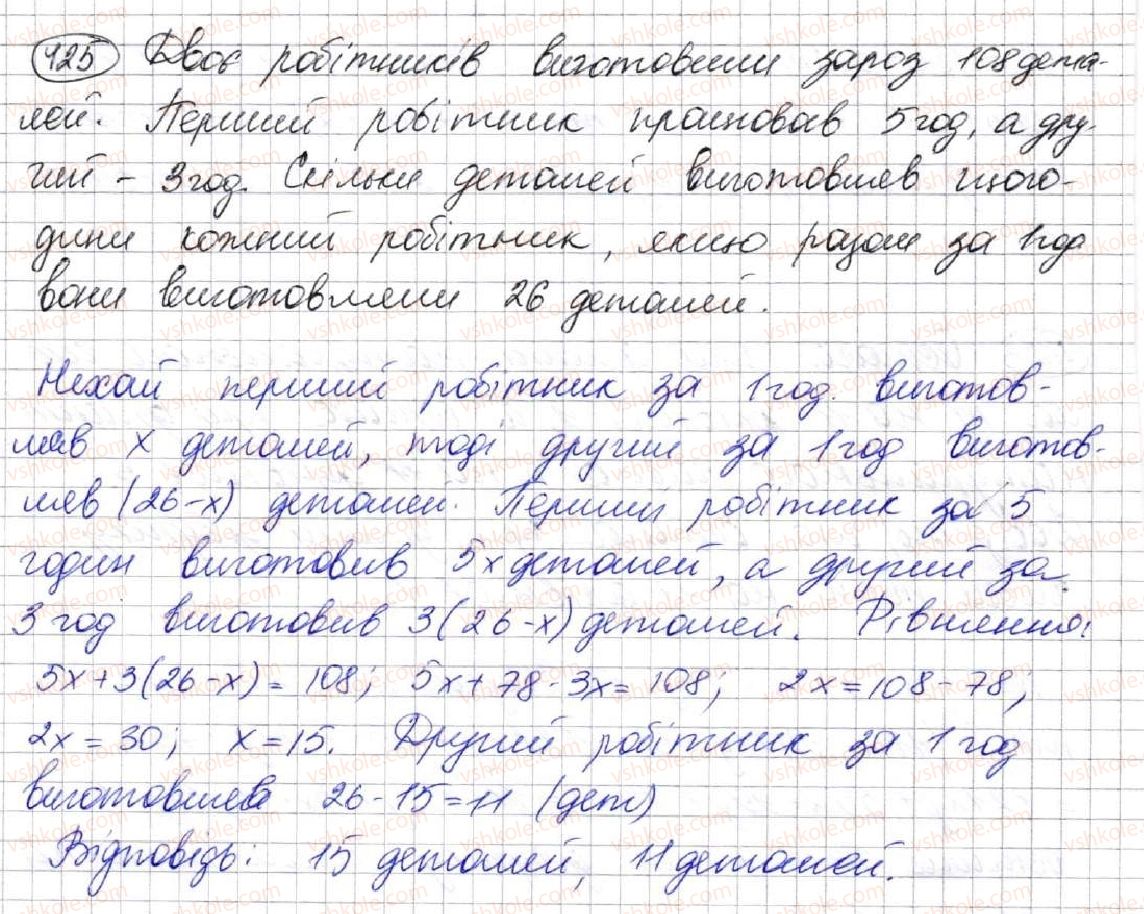 425 Двоє робітників виготовили зараз 108 дета-
лей. Перший робітник працював 5 год, а дру-
гий - 3 год. Скільки деталей виготовляв щого-
дини кожний робітник, якщо разом за 1 год
вони виготовляли 26 деталей.
Нехай перший робітник за 1 год. виготов-
ляв x деталей, тоді другий за 1 год виготов-
ляв (26-x) деталей. Перший робітник за 5
годин виготовив 5x деталей, а другий за
3 год виготовив 3(26-x) деталей. Рівняння:
5x+3(26-x)=108; 5x+78-3x=108; 2x=108-78;
2x=30; x=15. Другий робітник за 1 год
виготовляв 26-15=11 (дет)
Відповідь: 15 деталей, 11 деталей.